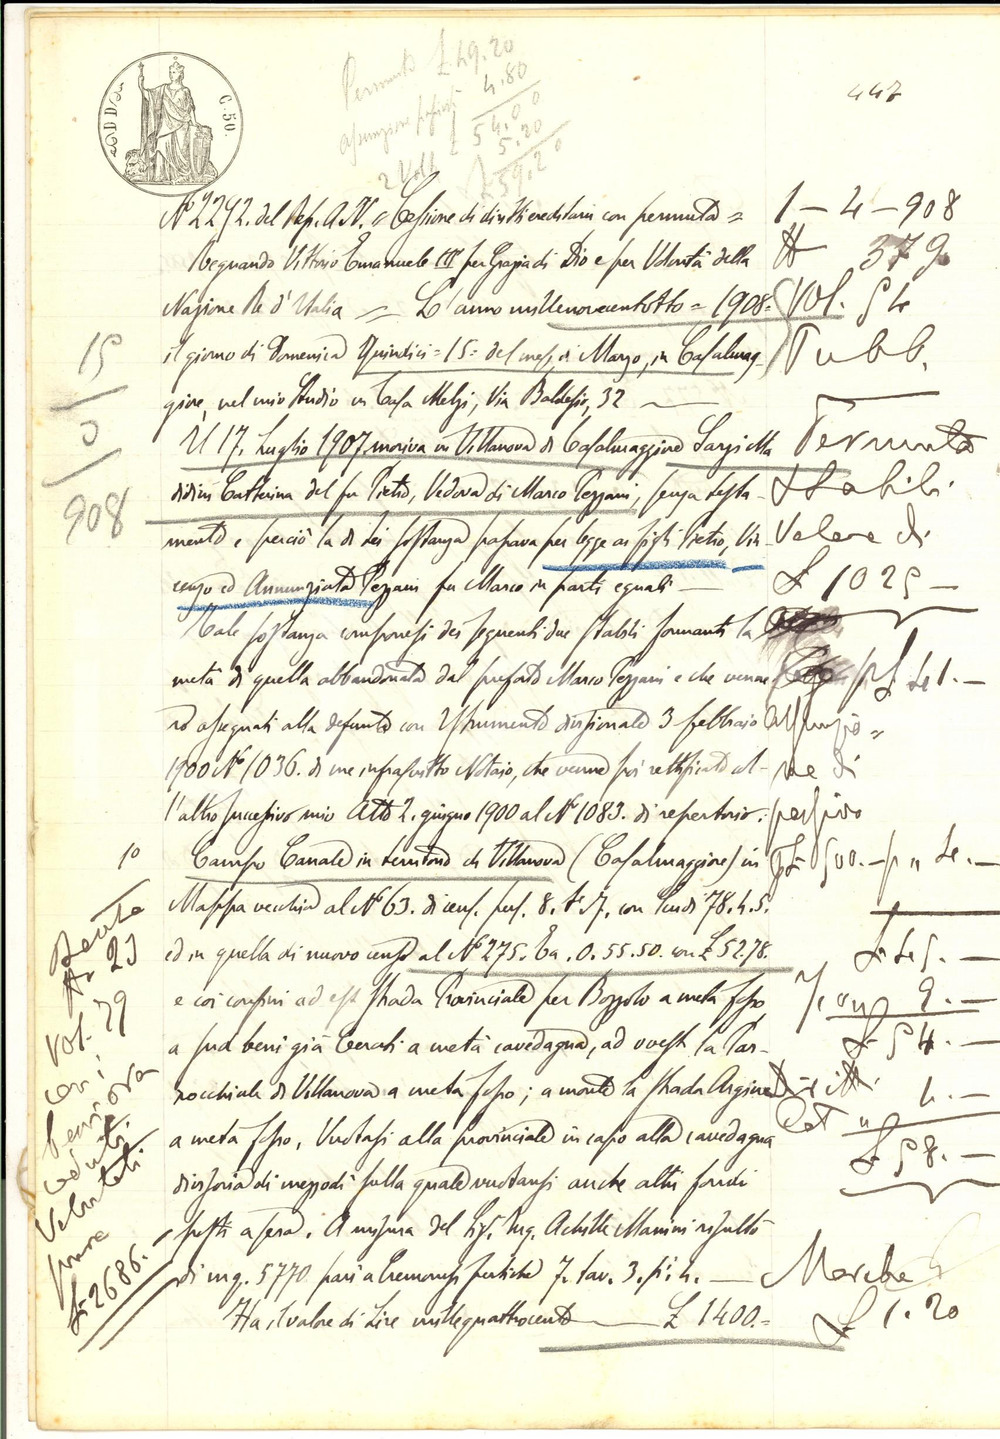 C. 50.
447
Permuta £ 49.20
4.80
assunzione passivi
£ 54.00
5.20
2 Volt
£ 59.20
N° 2292. del Rep. A. N. = Cessione di diritti ereditari con permuta =
Regnando Vittorio Emanuele III per Grazia di Dio e per Volontà della
Nazione Re d'Italia = L'anno millenovecentotto = 1908 =
il giorno di Domenica Quindici = 15 = del mese di Marzo, in Casalmag-
giore, nel mio Studio in Casa Melzi, Via Baldesio, 32
Il 17. Luglio 1907 moriva in Villanova di Casalmaggiore Sarzi Ma
didini Catterina del fu Pietro, Vedova di Marco Pezzani, senza testa-
mento e perciò la di Lei sostanza passava per legge ai figli Pietro, Vin-
cenzo ed Annunziata Pezzani fu Marco in parti eguali —
Tale sostanza componesi dei seguenti due stabili formanti la
metà di quella abbandonata dal prefato Marco Pezzani e che venne-
ro assegnati alla defunta con Istrumento divisionale 3 febbraio
1900 N° 1036. di me infrascritto Notaio, che venne poi rettificato al-
l'altro successivo mio Atto 2. giugno 1900 al N° 1083. di repertorio.
1°
Campo Canale in territorio di Villanova (Casalmaggiore) in
Mappa vecchia al N° 63. di cens. pert. 8. con Scudi 78.4.5.
ed in quella di nuovo censo al N° 275. Ea. 0.55.50. con £ 52.78.
e coi confini ad est Strada Provinciale per Bozzolo a metà fosso,
a sud beni già Cerati a metà cavedagna, ad ovest la Par-
rocchiale di Villanova a metà fosso; a monte la strada Argine
a metà fosso. Vuotasi alla provinciale in capo alla cavedagna
divisoria di mezzodì sulla quale vuotansi anche altri fondi
posti a sera. A misura del Sig. Ing. Achille Manini risultò
di mq. 5770 pari a Cremonesi pertiche 7. tav. 3. pi. 4. —
Ha il valore di Lire millequattrocento — £ 1400.=
15
3
908
N° 23
Vol. 79
beni
ceduti.
Valutati
£ 2686.
1 - 4 - 908
N 379
Vol. 54
Pubb.
Permuta
Stabili
Valore di
£ 1025 —
assunzio =
ne di
passivo
£ 500. —
£ 45. —
9. —
£ 54. —
Diritti
4. —
£ 58. —
Marche
£ 1.20